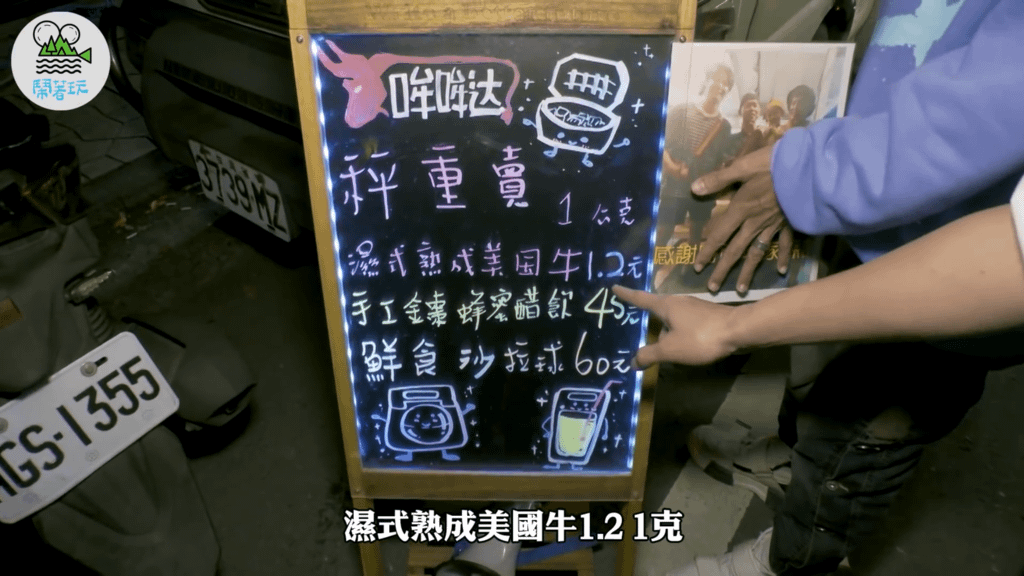 鬧著玩
哞哞达
秤重賣
1公克
濕式熟成美国牛1.2元
手工金棗蜂蜜醋飲45元
鮮食沙拉球60元
3739 MZ
GS-1355
感謝
濕式熟成美國牛1.2 1克